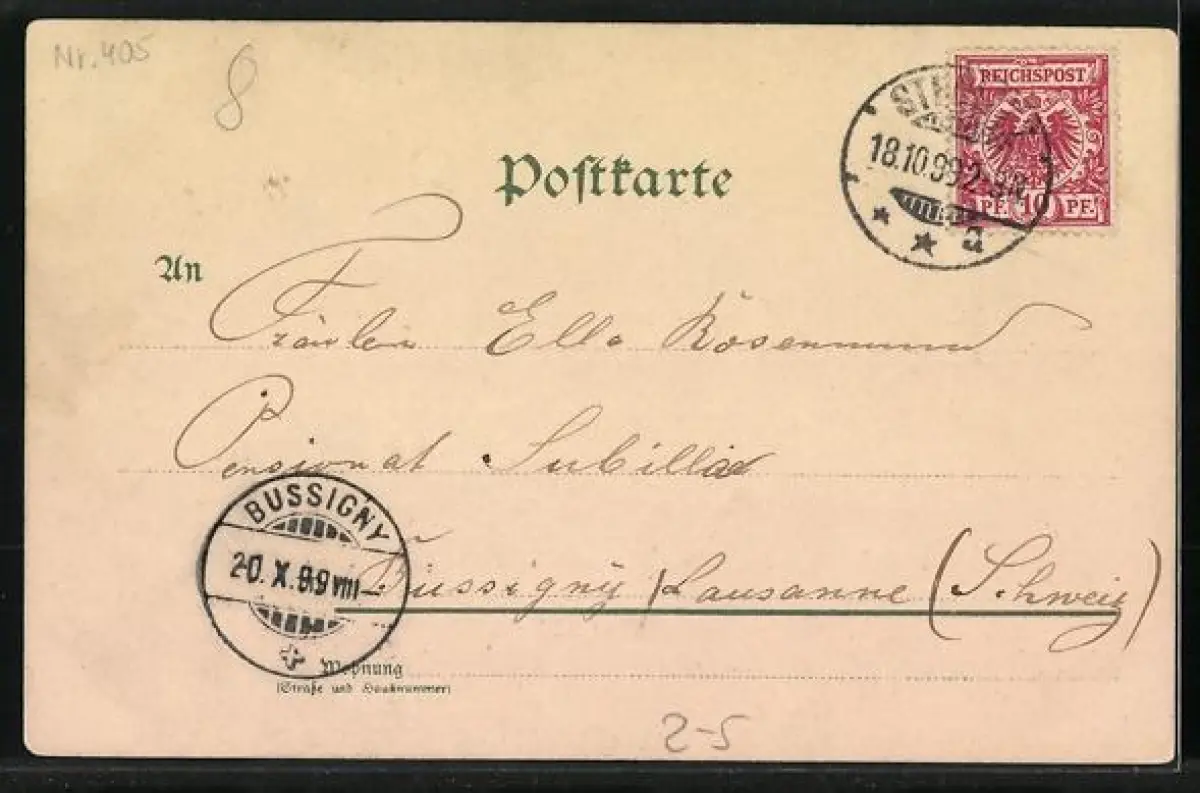 Nr. 405
8
REICHSPOST
PF. 10 PF.
18.10.99 2-3N
a
Postkarte
An
Fräulein Ella Rosenmund
Pensionat Subilliá
BUSSIGNY
20.X.99 VIII
Bussigny / Lausanne (Schweiz)
Wohnung
(Straße und Hausnummer)
2-5